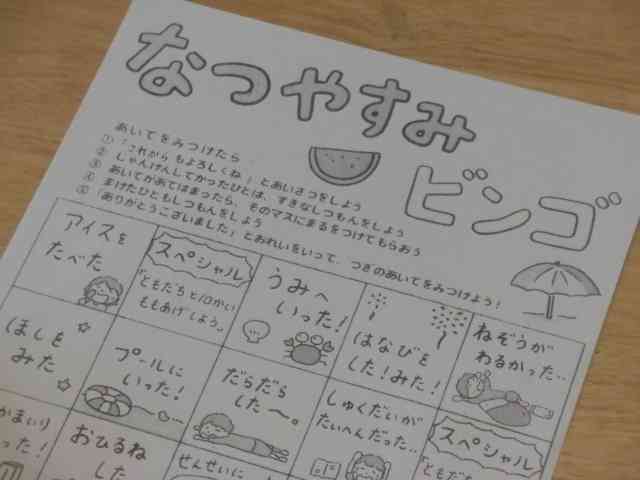 なつやすみ
ビンゴ
あいてをみつけたら
① 「これからもよろしくね」とあいさつをしよう
② じゃんけんしてかったひとは、すきなしつもんをしよう
③ あいてがあてはまったら、そのマスにまるをつけてもらおう
④ まけたひともしつもんをしよう
⑤ 「ありがとうございました」とおれいをいって、つぎのあいてをみつけよう！
アイスを
たべた
スペシャル
「ともだちと10かい
ももあげしよう。
うみへ
いった！
はなびを
した！みた！
ねぞうが
わるかった‥
ほしを
みた
プールに
いった！
だらだら
した〜。
しゅくだいが
たいへんだった‥
スペシャル
「ともだ
かまいり
った！
おひるね
した
せんせいに